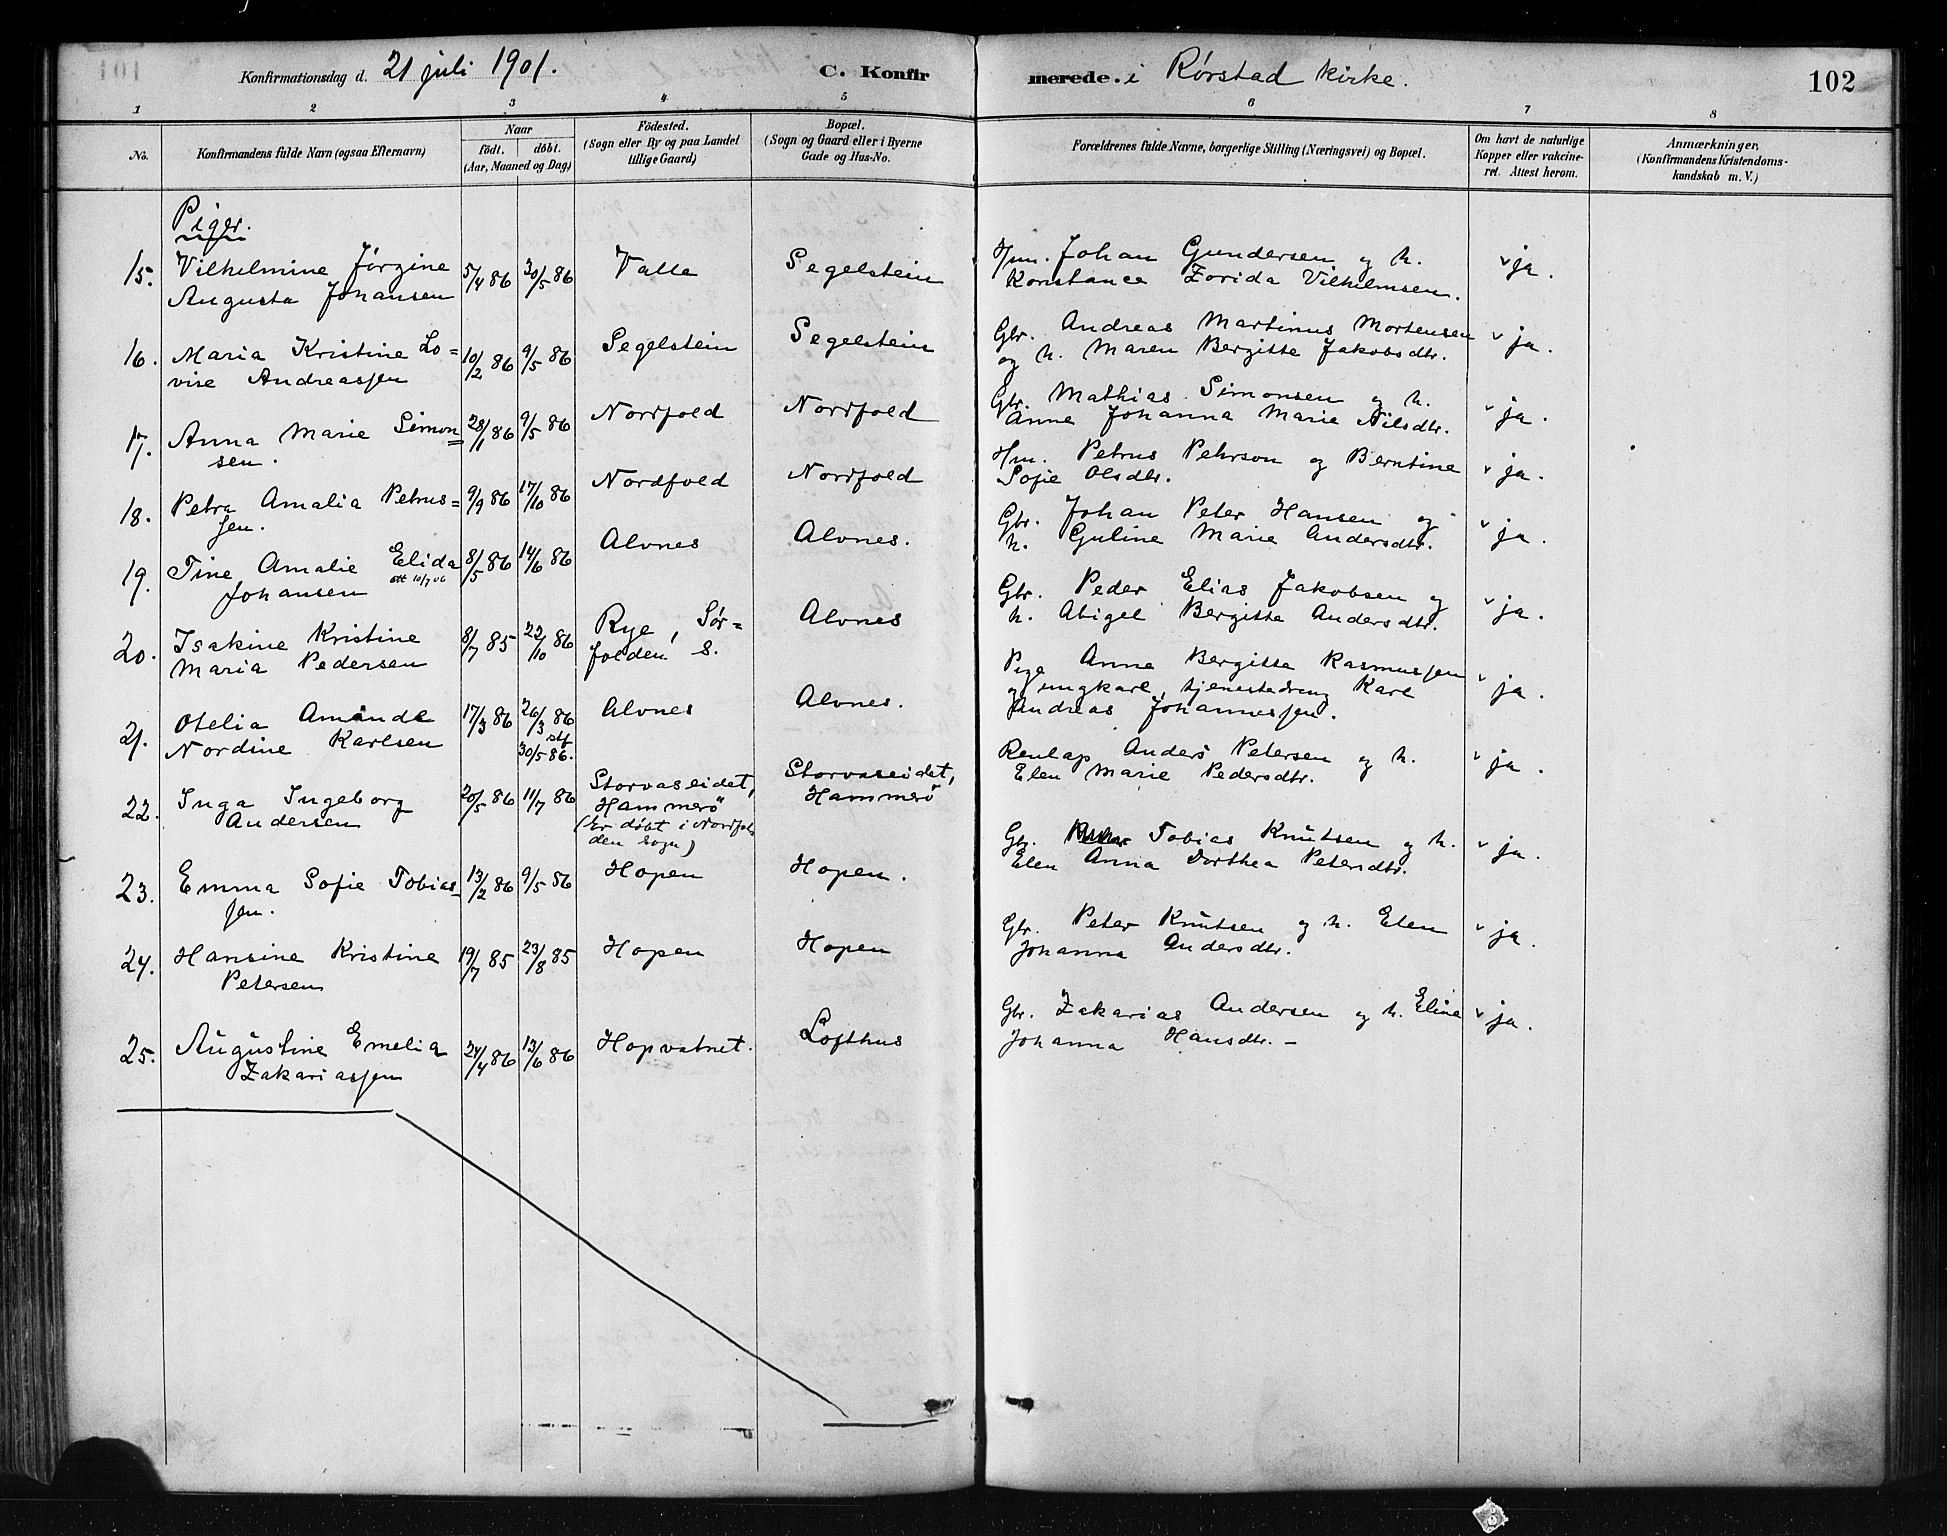 Konfirmationsdag d. 21 juli 1901. C. Konfirmerede. i Rørstad kirke. 102
1 2 3 4 5 6 7 8
No.
Konfirmandens fulde Navn (ogsaa Efternavn)
Naar
födt. döbt.
(Aar, Maaned og Dag)
Födested.
(Sogn eller By og paa Landet
tillige Gaard)
Bopæl.
(Sogn og Gaard eller i Byerne
Gade og Hus-No.
Forældrenes fulde Navne, borgerlige Stilling (Næringsvei) og Bopæl.
Om havt de naturlige
Kopper eller vakcine-
ret. Attest herom.
Anmærkninger,
(Konfirmandens Kristendoms-
kundskab m. V.)
Piger.
15. Vilhelmine Jørgine 5/4 86 30/5 86 Valle Segelstein Hm. Johan Gundersen og h. ja.
Augusta Johansen Konstance Zorida Vilhelmsen.
16. Maria Kristine Lo= 10/2 86 9/5 86 Segelstein Segelstein Gbr. Andreas Martinus Mortensen ja.
vise Andreassen og h. Maren Bergitte Jakobsdtr.
17. Anna Marie Simon= 28/1 86 9/5 86 Nordfold Nordfold Gbr. Mathias Simonsen og h. ja.
sen. Anne Johanna Marie Nilsdtr.
18. Petra Amalia Petrus= 9/9 86 17/10 86 Nordfold Nordfold Hm. Petrus Pehrson og Berntine ja.
sen. Sofie Olsdtr.
19. Tine Amalie Elida 8/5 86 14/6 86 Alvnes Alvnes. Gbr. Johan Peter Hansen og ja.
Johansen att 10/7 06 h. Guline Marie Andersdtr.
20. Isakine Kristine 8/7 85 22/10 86 Rye, Sør= Alvnes Gbr. Peder Elias Jakobsen og ja.
Maria Pedersen folden s. h. Abigel Bergitte Andersdtr.
21. Otelia Amande 17/3 86 26/3 86 Alvnes Alvnes. Pige Anne Bergitte Rasmussen ja.
Nordine Karlsen stf 30/5 86. og ungkarl, tjenestedreng Karl
Andreas Johannessen.
22. Inga Ingeborg 20/5 86 11/7 86 Storvaseidet, Storvaseidet, Renlap Anders Petersen og h. ja.
Andersen Hammerö Hammerö Elen Marie Pedersdtr.
(Er döbt i Nordfol
den sogn)
23. Emma Sofie Tobias- 13/2 86 9/5 86 Hopen Hopen. Gbr. Tobias Knutsen og h. ja.
sen. Elen Anna Dorthea Petersdtr.
24. Hansine Kristine 19/7 85 23/8 85 Hopen Hopen Gbr. Peter Knutsen og h. Elen ja.
Petersen Johanna Andersdtr.
25. Augustine Emelia 24/4 86 13/6 86 Hopvatnet. Lofthus Gbr. Zakarias Andersen og h. Eline ja.
Zakariassen Johanna Hansdtr. –